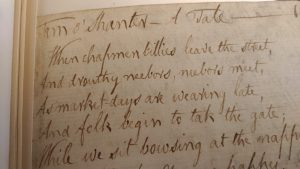 Tam o' Shanter — A Tale —
When chapmen billies leave the street,
And drouthy neebors, neebors meet,
As market-days are wearing late,
And folk begin to tak the gate;
While we sit bowsing at the nappy
happy